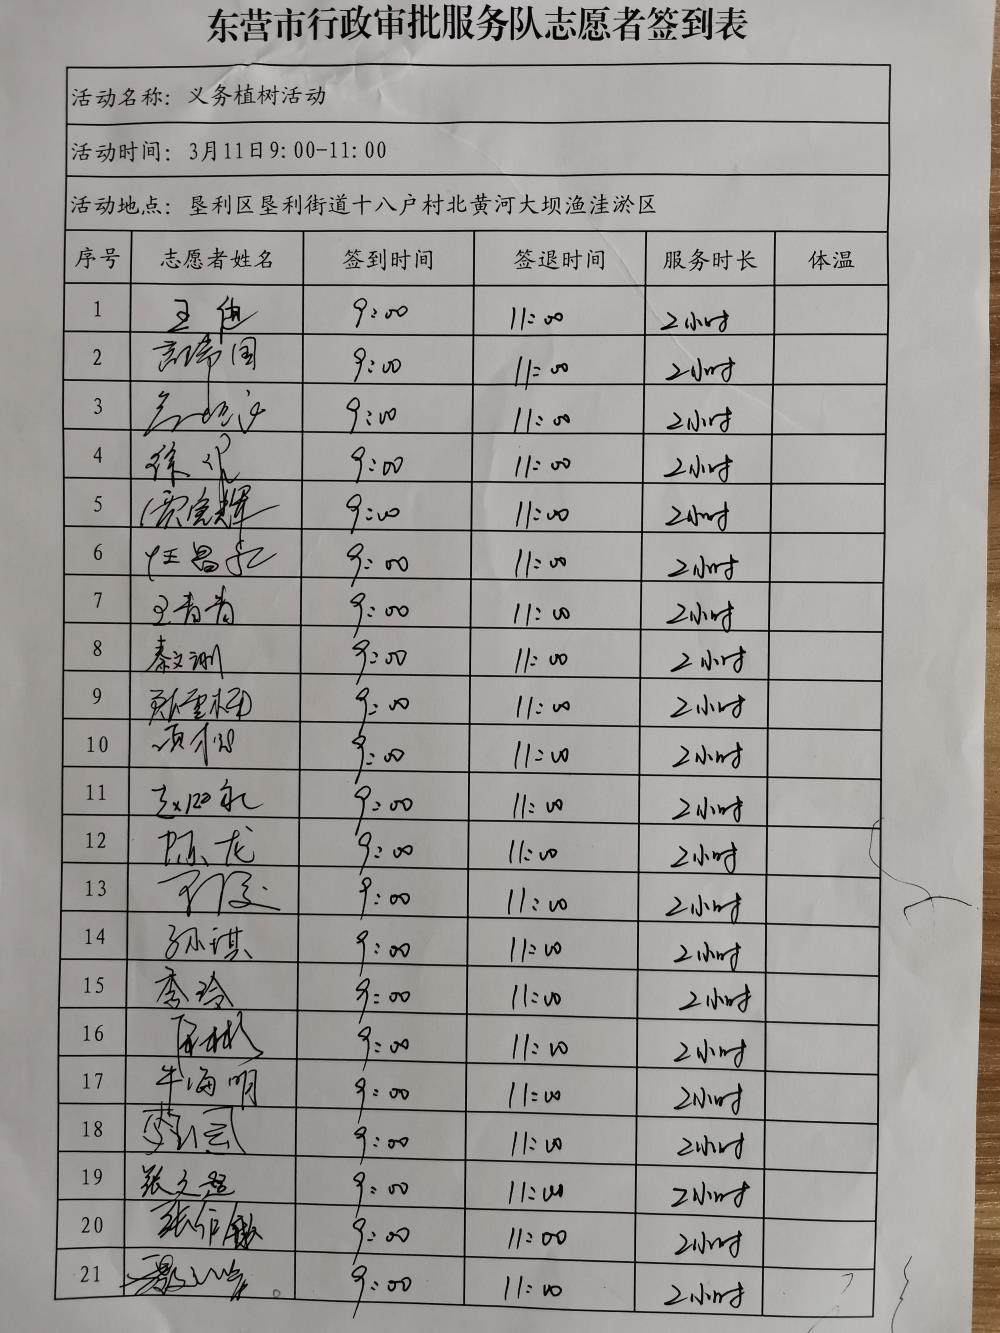 东营市行政审批服务队志愿者签到表
活动名称：义务植树活动
活动时间：3月11日9:00-11:00
活动地点：垦利区垦利街道十八户村北黄河大坝渔洼淤区
序号 志愿者姓名 签到时间 签退时间 服务时长 体温
1 王 9:00 11:00 2小时
2 国 9:00 11:00 2小时
3 9:00 11:00 2小时
4 徐 9:00 11:00 2小时
5 贾宪辉 9:00 11:00 2小时
6 任昌 9:00 11:00 2小时
7 王青青 9:00 11:00 2小时
8 秦文洲 9:00 11:00 2小时
9 9:00 11:00 2小时
10 9:00 11:00 2小时
11 9:00 11:00 2小时
12 陈龙 9:00 11:00 2小时
13 9:00 11:00 2小时
14 孙琪 9:00 11:00 2小时
15 季玲 9:00 11:00 2小时
16 9:00 11:00 2小时
17 牛海明 9:00 11:00 2小时
18 9:00 11:00 2小时
19 张文 9:00 11:00 2小时
20 张 9:00 11:00 2小时
21 9:00 11:00 2小时